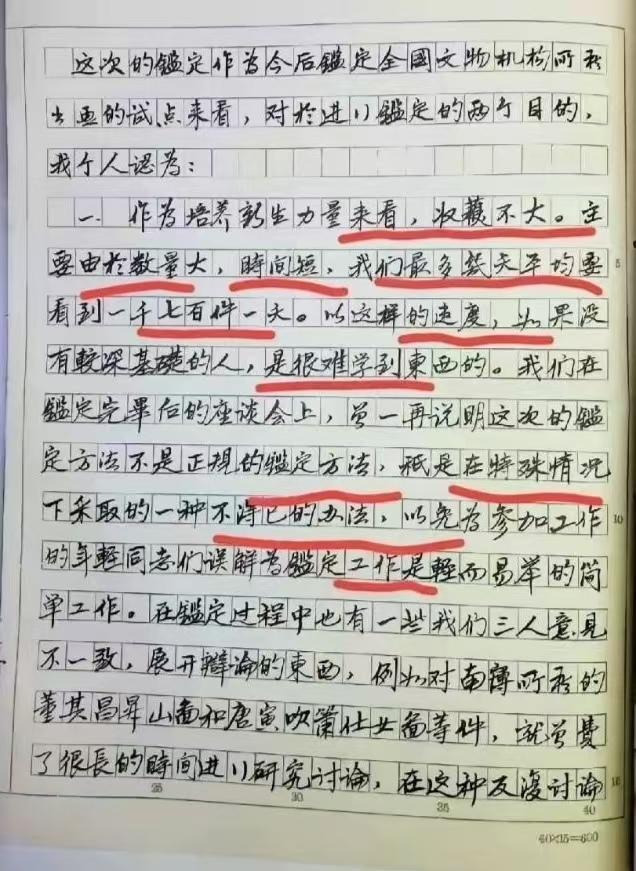 这次的鑑定作为今后鑑定全國文物机构所存
书画的试点来看，对於进行鑑定的两个目的，
我个人認为：
一. 作为培养新生力量来看，收穫不大。主
要由於数量大，時间短，我们最多幾天平均要
看到一千七百件一天。以这样的速度，如果没
有較深基礎的人，是很难学到東西的。我们在
鑑定完畢后的座谈会上，曾一再说明这次的鑑
定方法不是正規的鑑定方法，祗是在特殊情况
下采取的一种不得已的办法，以免为参加工作
的年輕同志们误解为鑑定工作是輕而易举的简
单工作。在鑑定过程中也有一些我们三人意見
不一致，展开辯論的東西，例如对南博所存的
董其昌昇山啚和唐寅吹簫仕女啚等件，就曾費
了很長的時间进行研究讨論，在这种反復讨論
5
10
15
25
30
35
40
40×15=600